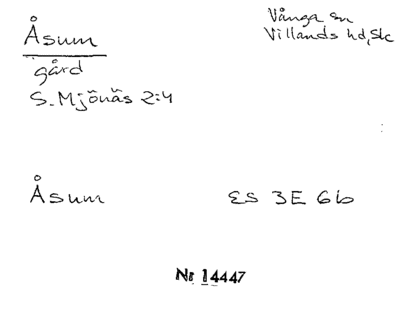 Åsum
gård
S. Mjönäs 2:4
Vånga sn
Villands hd, Skc
Åsum
ES 3E 6 ib
Nr 14447